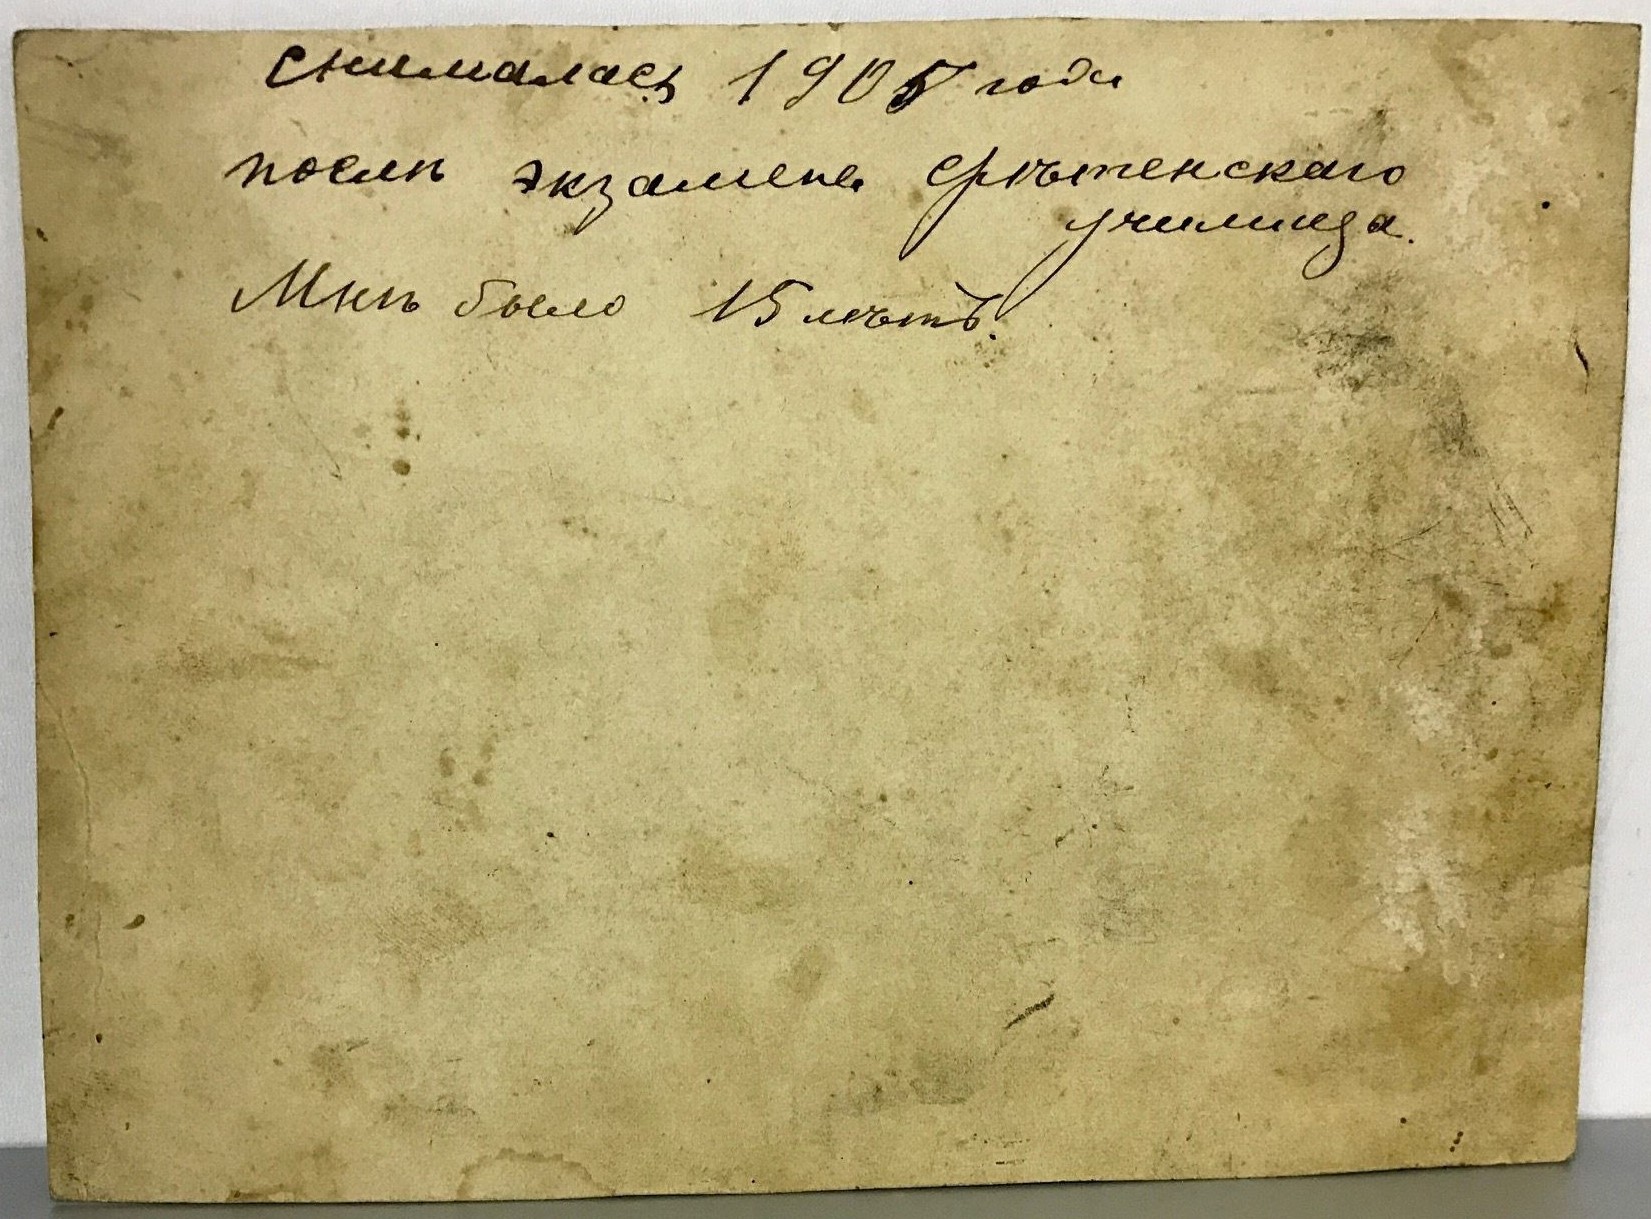 снималась 1905 года
послѣ экзамена срѣтенскаго
училища.
Мнѣ было 15 лѣтъ.